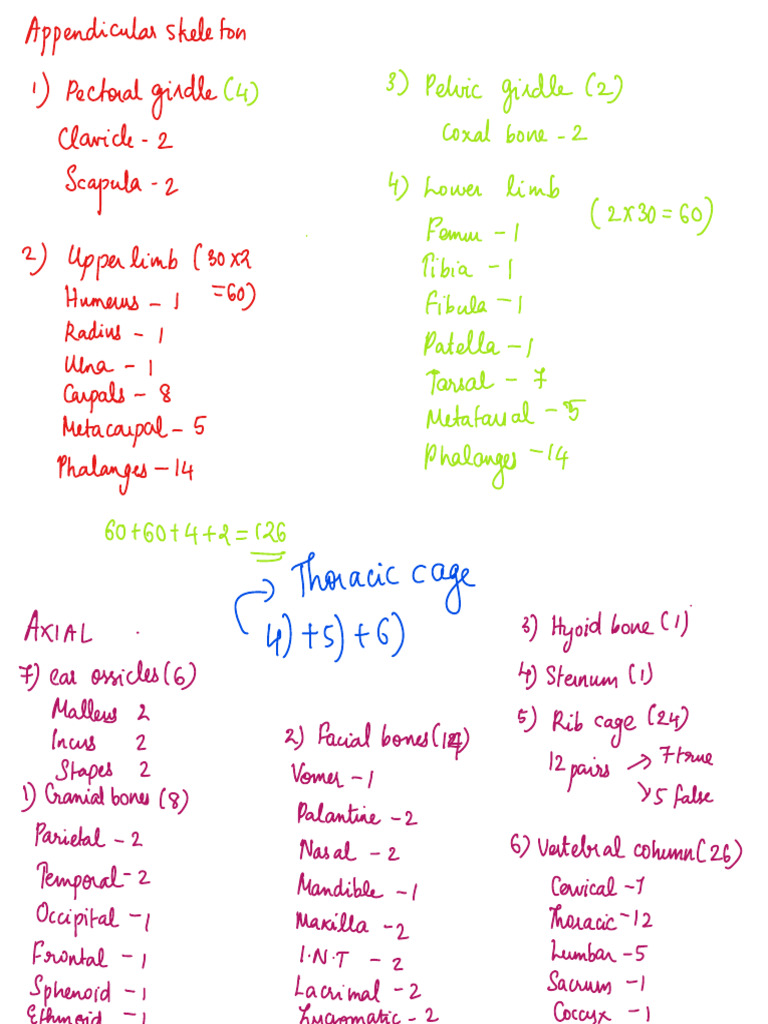 Appendicular skeleton
1) Pectoral girdle (4)
Clavicle - 2
Scapula - 2
2) Upper limb (30x2
=60)
Humerus - 1
Radius - 1
Ulna - 1
Carpals - 8
Metacarpal - 5
Phalanges - 14
3) Pelvic girdle (2)
Coxal bone - 2
4) Lower limb
(2x30=60)
Femur - 1
Tibia - 1
Fibula - 1
Patella - 1
Tarsal - 7
Metatarsal - 5
Phalanges - 14
60+60+4+2=126
Thoracic cage
4)+5)+6)
AXIAL
7) ear ossicles (6)
Malleus 2
Incus 2
Stapes 2
1) Cranial bones (8)
Parietal - 2
Temporal - 2
Occipital - 1
Frontal - 1
Sphenoid - 1
Ethmoid - 1
2) Facial bones (14)
Vomer - 1
Palantine - 2
Nasal - 2
Mandible - 1
Maxilla - 2
I.N.T - 2
Lacrimal - 2
Zygomatic - 2
3) Hyoid bone (1)
4) Sternum (1)
5) Rib cage (24)
12 pairs → 7 true
→ 5 false
6) Vertebral column (26)
Cervical - 7
Thoracic - 12
Lumbar - 5
Sacrum - 1
Coccyx - 1